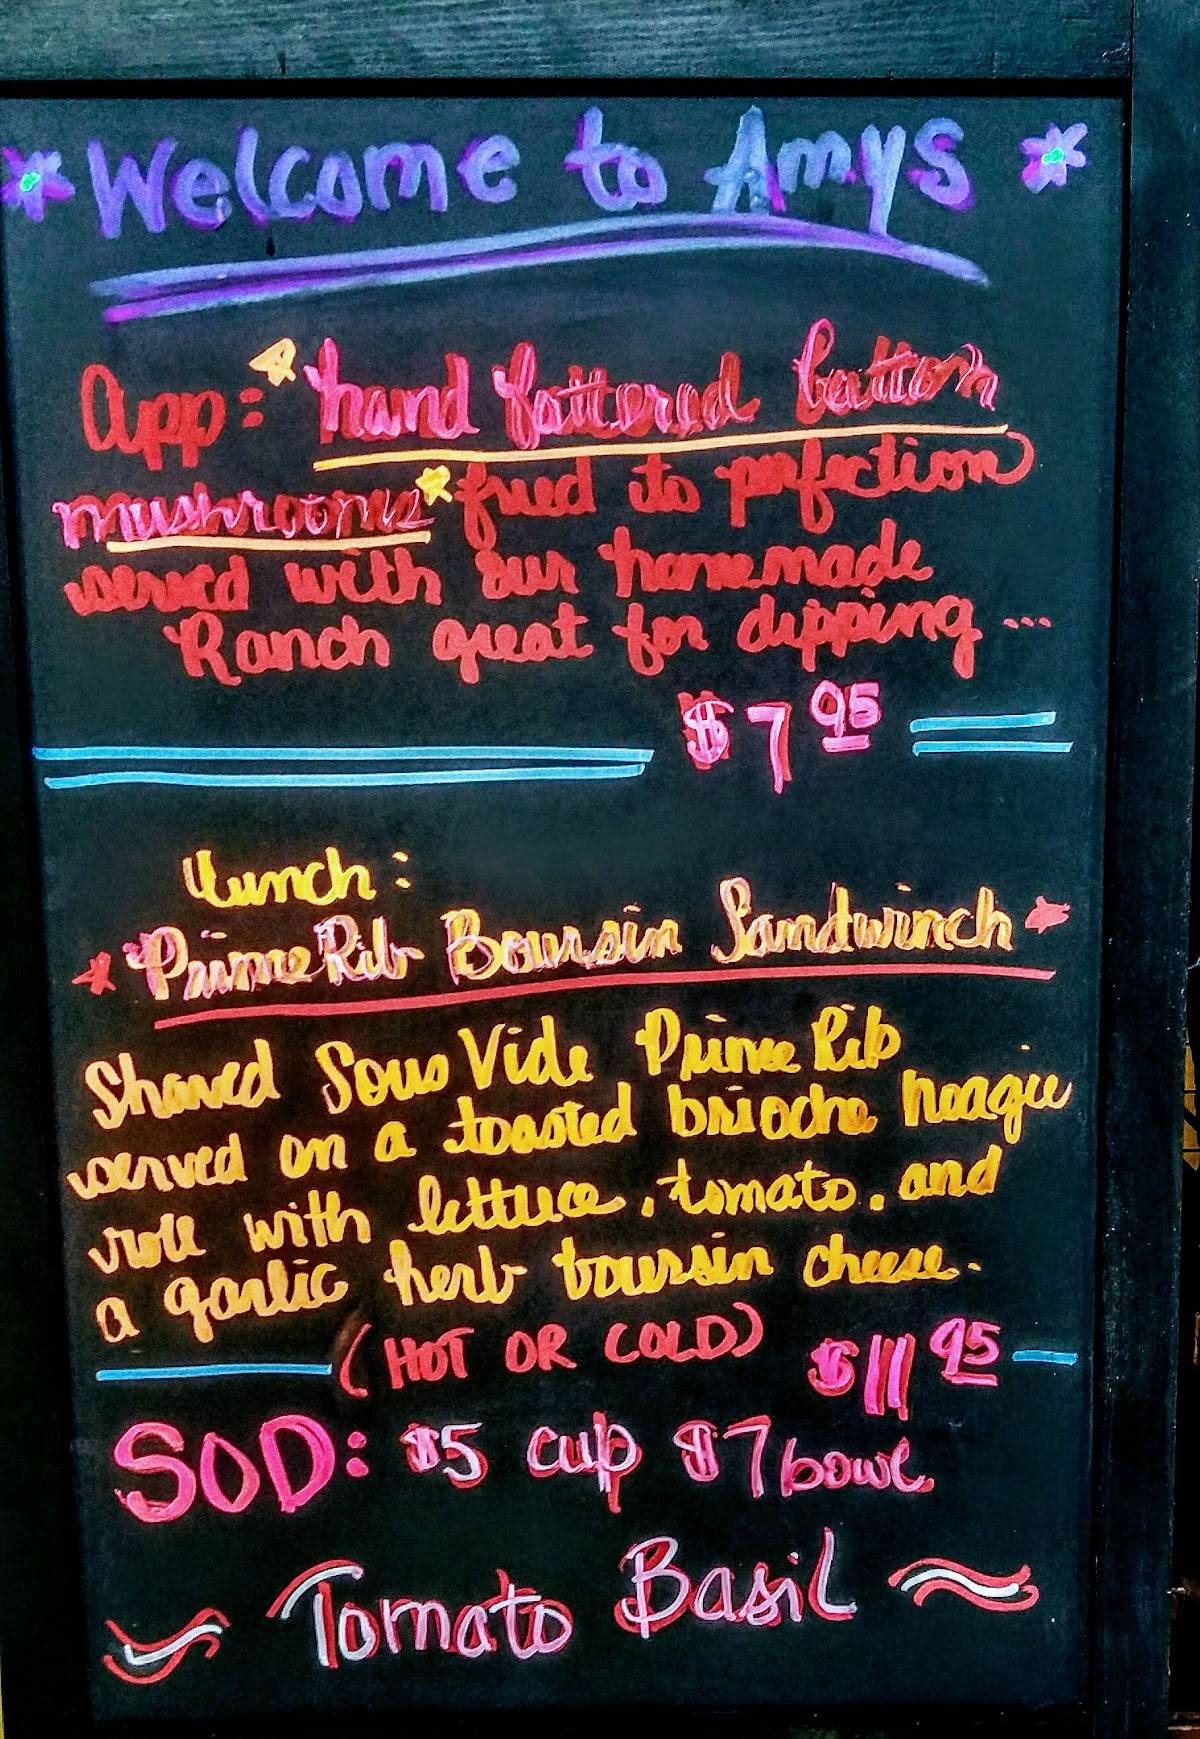 Welcome to Amys
App: hand battered button
mushrooms fried to perfection
served with our homemade
Ranch great for dipping ...
$7 95
Lunch:
Prime Rib Boursin Sandwinch
Shaved Sous Vide Prime Rib
served on a toasted brioche hoagie
role with lettuce, tomato, and
a garlic herb boursin cheese.
(HOT OR COLD) $11 95
SOD: $5 cup $7 bowl
Tomato Basil